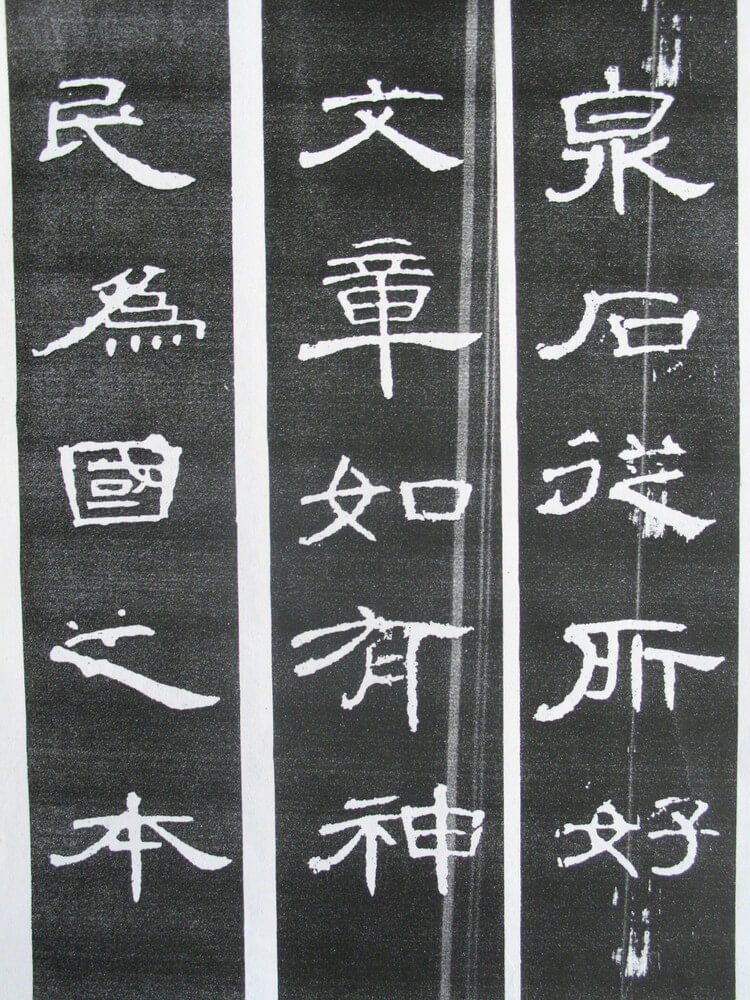 泉石從所好
文章如有神
民為國之本